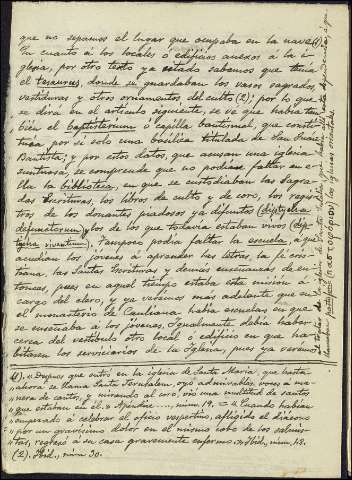 que no sepamos el lugar que ocupaba en la nave (1).
En cuanto á los locales ó edificios anexos á la I-
glesia, por otro texto ya citado sabemos que tenía
el tesaurus, donde se guardaban los vasos sagrados,
vestiduras y otros ornamentos del culto (2); por lo que
se dirá en el artículo siguiente, se ve que había tam-
bién el baptisterium ó capilla bautismal, que consti-
tuía por sí solo una basílica titulada de San Juan
Bautista; y por estos datos, que acusan una iglesia
suntuosa, se comprende que no podrían faltar en e-
lla la biblioteca, en que se custodiaban las Sagra-
das Escrituras, los libros de culto y de coro, los regis-
tros de los donantes piadosos ya difuntos (diptycha
defunctorum) y los de los que todavía estaban vivos (dip-
tycha viventium). Tampoco podría faltar la escuela, a que
acudían los jóvenes á aprender las letras, la fe cris-
tiana, las Santas Escrituras y demás enseñanzas de en-
tonces, pues en aquel tiempo estaba esta misión á
cargo del clero, y ya veremos más adelante que en
el monasterio de Cauliana había escuelas en que
se enseñaba á los jóvenes. Igualmente debía haber
cerca del vestíbulo otro local ó edificio en que ha-
bitasen los servidores de la Iglesia, pues ya veremos
(1). «Después que entró en la iglesia de Santa María, que hasta
» ahora se llama Santa Jerusalem, oyó admirables voces á ma-
» nera de cantos, y mirando al coro, vio una multitud de santos
» que estaban en él.» Apéndice ..., núm. 19. = «Cuando habían
» empezado á celebrar el oficio vespertino, afligido el diácono
» por un gravísimo dolor en el mismo coro de los salmis-
» tas, regresó á su casa gravemente enfermo.» Ibid., núm. 48.
(2). Ibid., núm. 30.